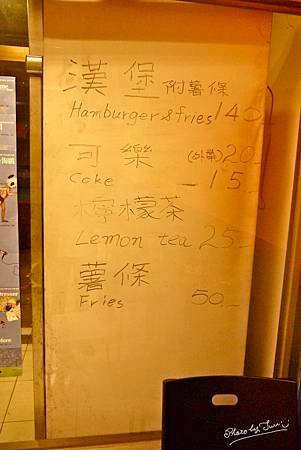 漢堡附薯條
Hamburger & fries 140.-
可樂 (外帶) 20.-
Coke — 15.-
檸檬茶
Lemon tea 25.-
薯條
Fries 50.-